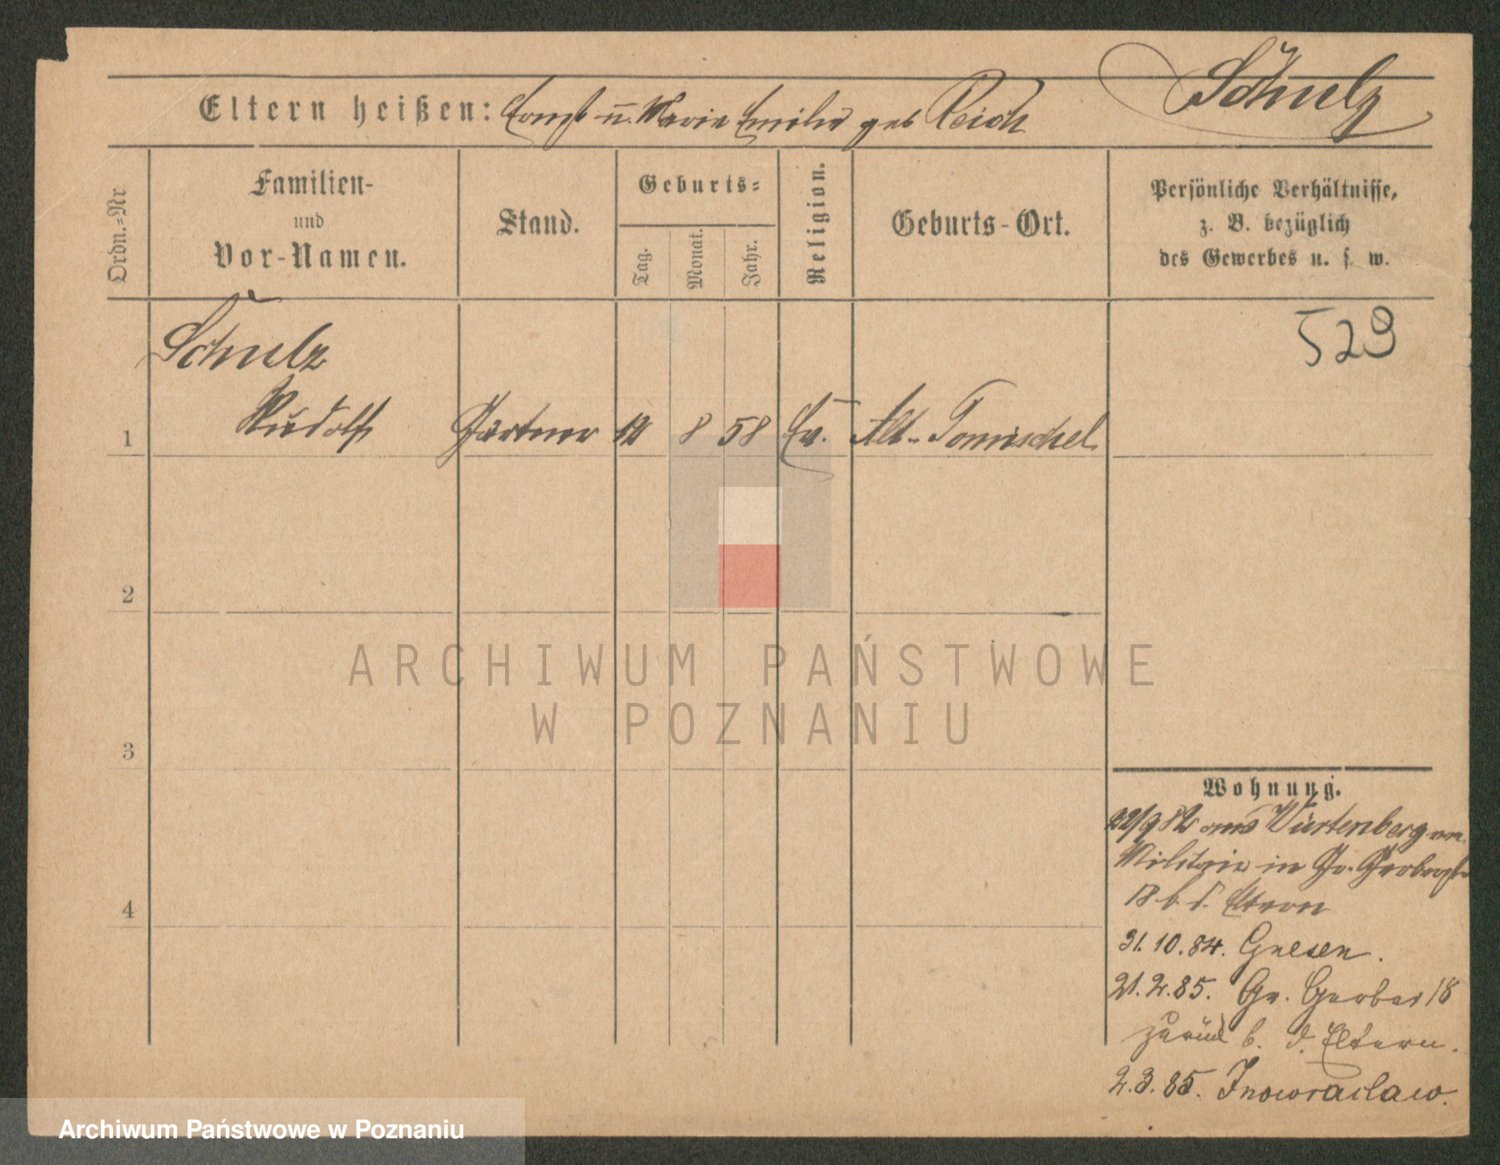 Schulz
Eltern heißen: Ernst u. Marie Emilie geb Reich
Ordn.-Nr
Familien-
und
Vor-Namen.
Stand.
Geburts-
Tag.
Monat.
Jahr.
Religion.
Geburts-Ort.
Persönliche Verhältnisse,
z. B. bezüglich
des Gewerbes u. s. w.
529
Schulz
1 Rudolf Gärtner 12 8 58 Ev. Alt-Tomischel
2
3
4
Wohnung.
22/9 82 aus Würtenberg vom
Militair in Gr. Gerberstr
18 b. d. Eltern
31.10.84. Gnesen.
21.2.85. Gr. Gerber 18
zurück b. d. Eltern.
2.3.85. Inowraclaw.
ARCHIWUM PAŃSTWOWE
W POZNANIU
Archiwum Państwowe w Poznaniu